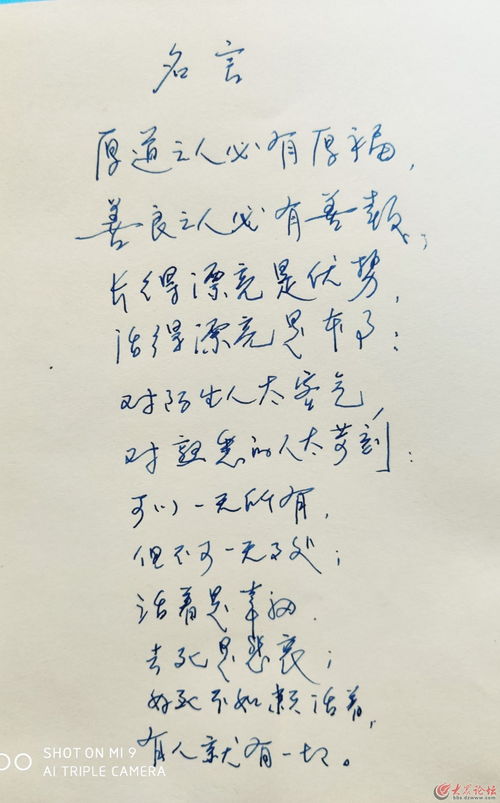 名言
厚道之人必有厚福,
善良之人必有善报;
长得漂亮是优势,
活得漂亮是本事;
对陌生人太客气,
对熟悉的人太苛刻;
可以一无所有,
但不可一无是处;
活着是幸福,
去死是悲哀;
好死不如赖活着,
有人就有一切。
SHOT ON MI 9
AI TRIPLE CAMERA
大众论坛
bbs.dzwww.com